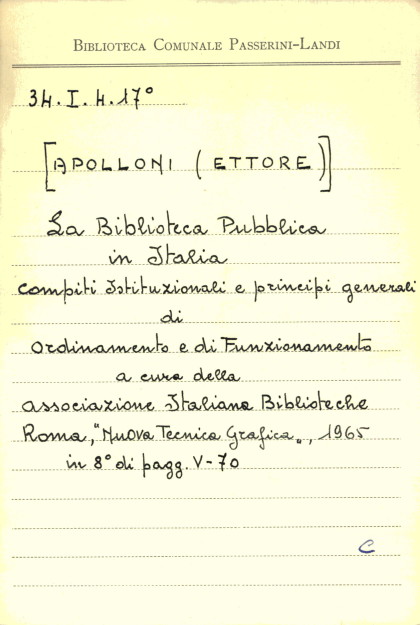 BIBLIOTECA COMUNALE PASSERINI-LANDI
34.I.4.17°
[APOLLONI (ETTORE)]
La Biblioteca Pubblica
in Italia
compiti Istituzionali e principi generali
di
Ordinamento e di Funzionamento
a cura della
associazione Italiana Biblioteche
Roma, "Nuova Tecnica Grafica", 1965
in 8° di pagg. V-70
C